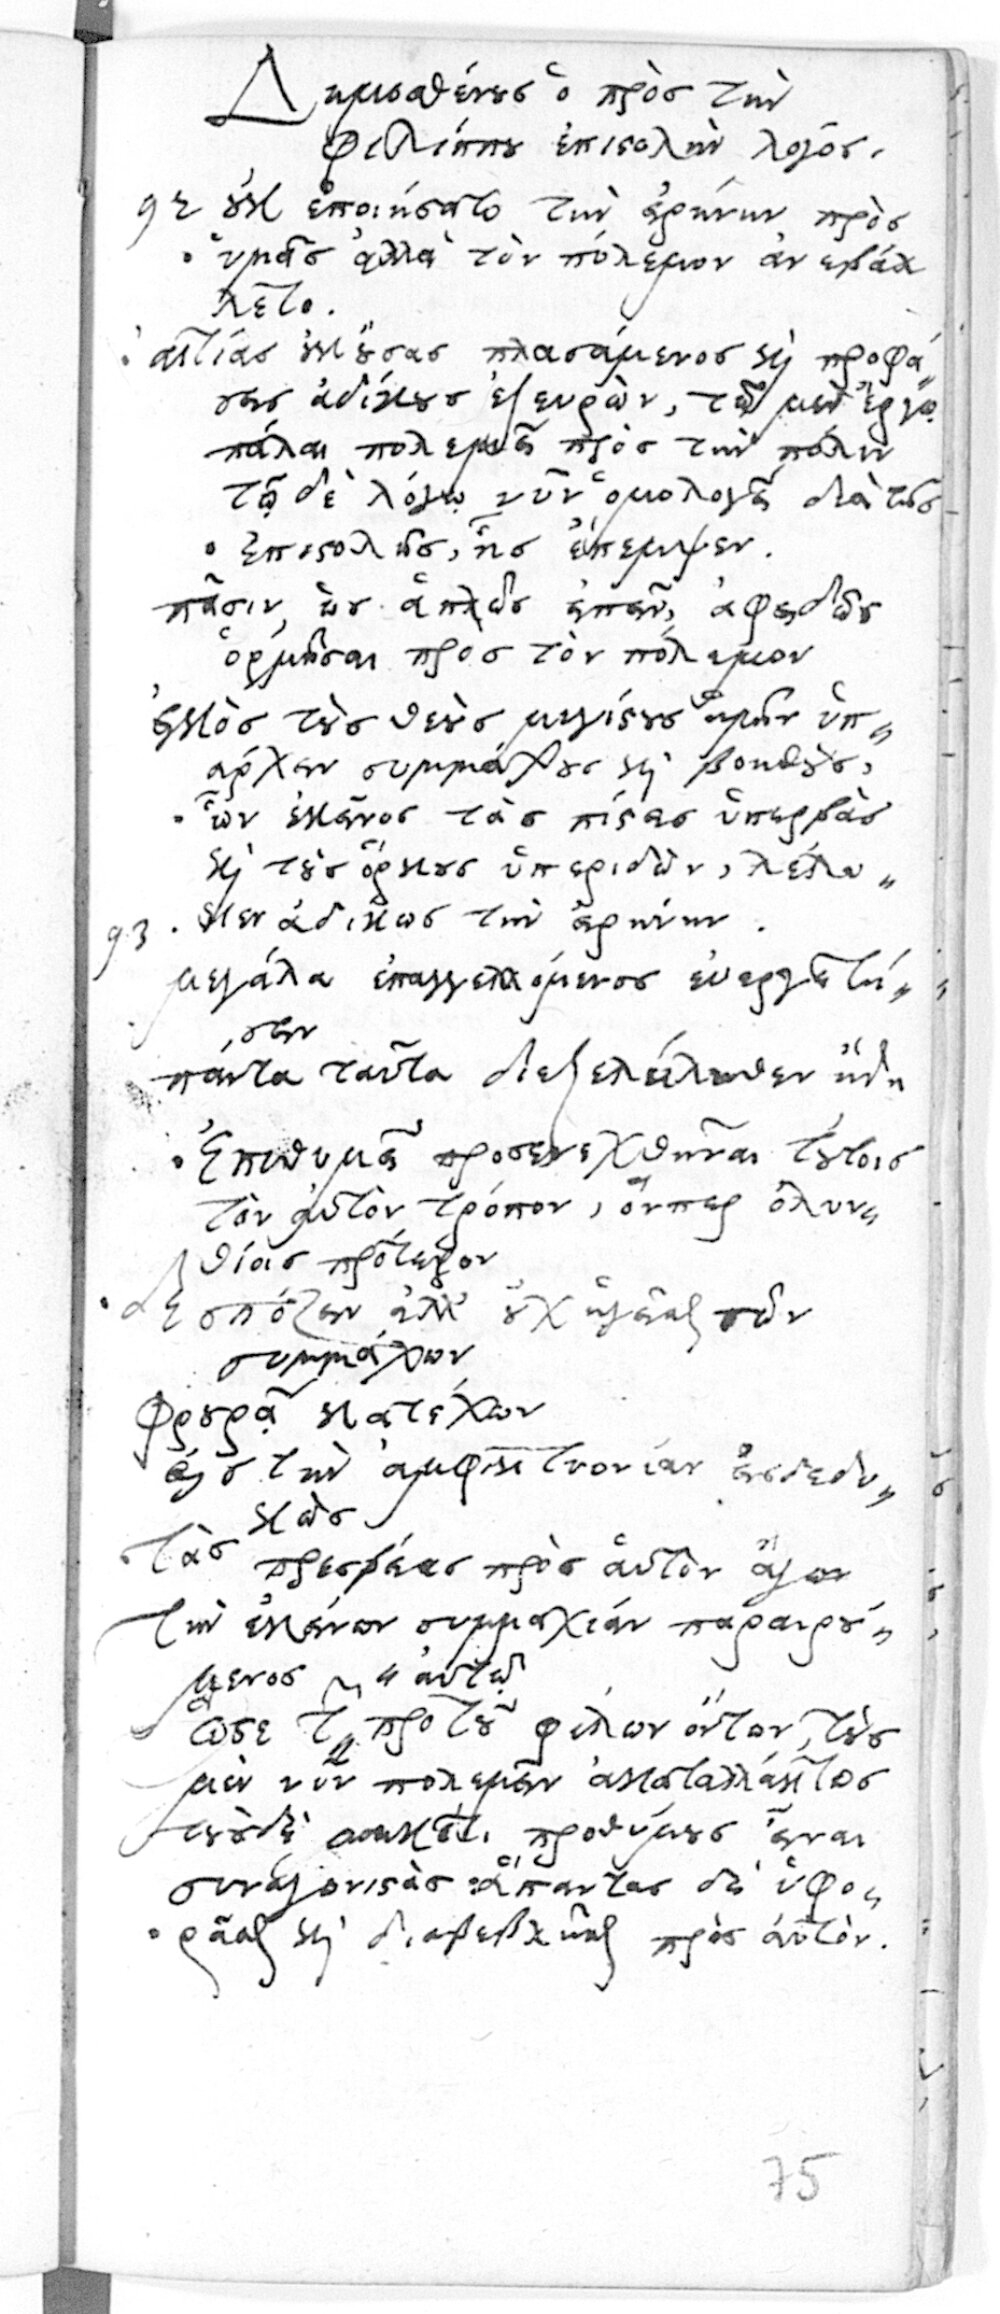 Δημοσθένους ὁ πρὸς τὴν
φιλίππου ἐπιστολὴν λόγος.
92 οὐκ ἐποιήσατο τὴν εἰρήνην πρὸς
ὑμᾶς ἀλλὰ τὸν πόλεμον ἀνεβάλ
λετο.
αἰτίας ἑκούσας πλασάμενος καὶ προφά〃
σεις ἀδίκους ἐξευρὼν, τῷ μὲν ἔργῳ
πάλαι πολεμεῖ πρὸς τὴν πόλιν
τῷ δὲ λόγῳ νῦν ὁμολογεῖ διὰ τῆς
ἐπιστολῆς, ἧς ἔπεμψεν.
πᾶσιν, ὡς ἁπλῶς εἰπεῖν, ἀφειδῶς
ὁρμῆσαι πρὸς τὸν πόλεμον
εἰκὸς τοὺς θεοὺς μεγίστους ἡμῖν ὑπ〃
άρχειν συμμάχους καὶ βοηθοὺς,
ὧν ἐκεῖνος τὰς πίστεις ὑπερβὰς
καὶ τοὺς ὅρκους ὑπεριδὼν, λέλυ〃
κεν ἀδίκως τὴν εἰρήνην.
93 μεγάλα ἐπαγγελλόμενος εὐεργετή〃
σειν
πάντα ταῦτα διεξελήλυθεν ἤδη
ἐπιθυμεῖ προσενεχθῆναι τούτοις
τὸν αὐτὸν τρόπον, ὅνπερ ὀλυν〃
θίοις πρότερον
δεσπόζειν ἀλλ' οὐχ ἡγεῖσθαι τῶν
συμμάχων
φρουρᾷ κατέχων
εἰς τὴν ἀμφικτυονίαν εἰσδεδυ〃
κὼς
τὰς πρεσβείας πρὸς αὑτὸν ἄγων
τὴν ἐκείνων συμμαχίαν παραιρού〃
μενος 〃 αὐτῷ
ὥστε τῶν προτοῦ φίλων ὄντων, τοὺς
μὲν νῦν πολεμεῖν ἀκαταλλάκτως
τοὺς δὲ μηκέτι προθύμους εἶναι
συναγωνιστὰς ἅπαντας δὲ ὑφο〃
ρᾶσθαι καὶ διαβεβλῆσθαι πρὸς αὐτὸν.
75